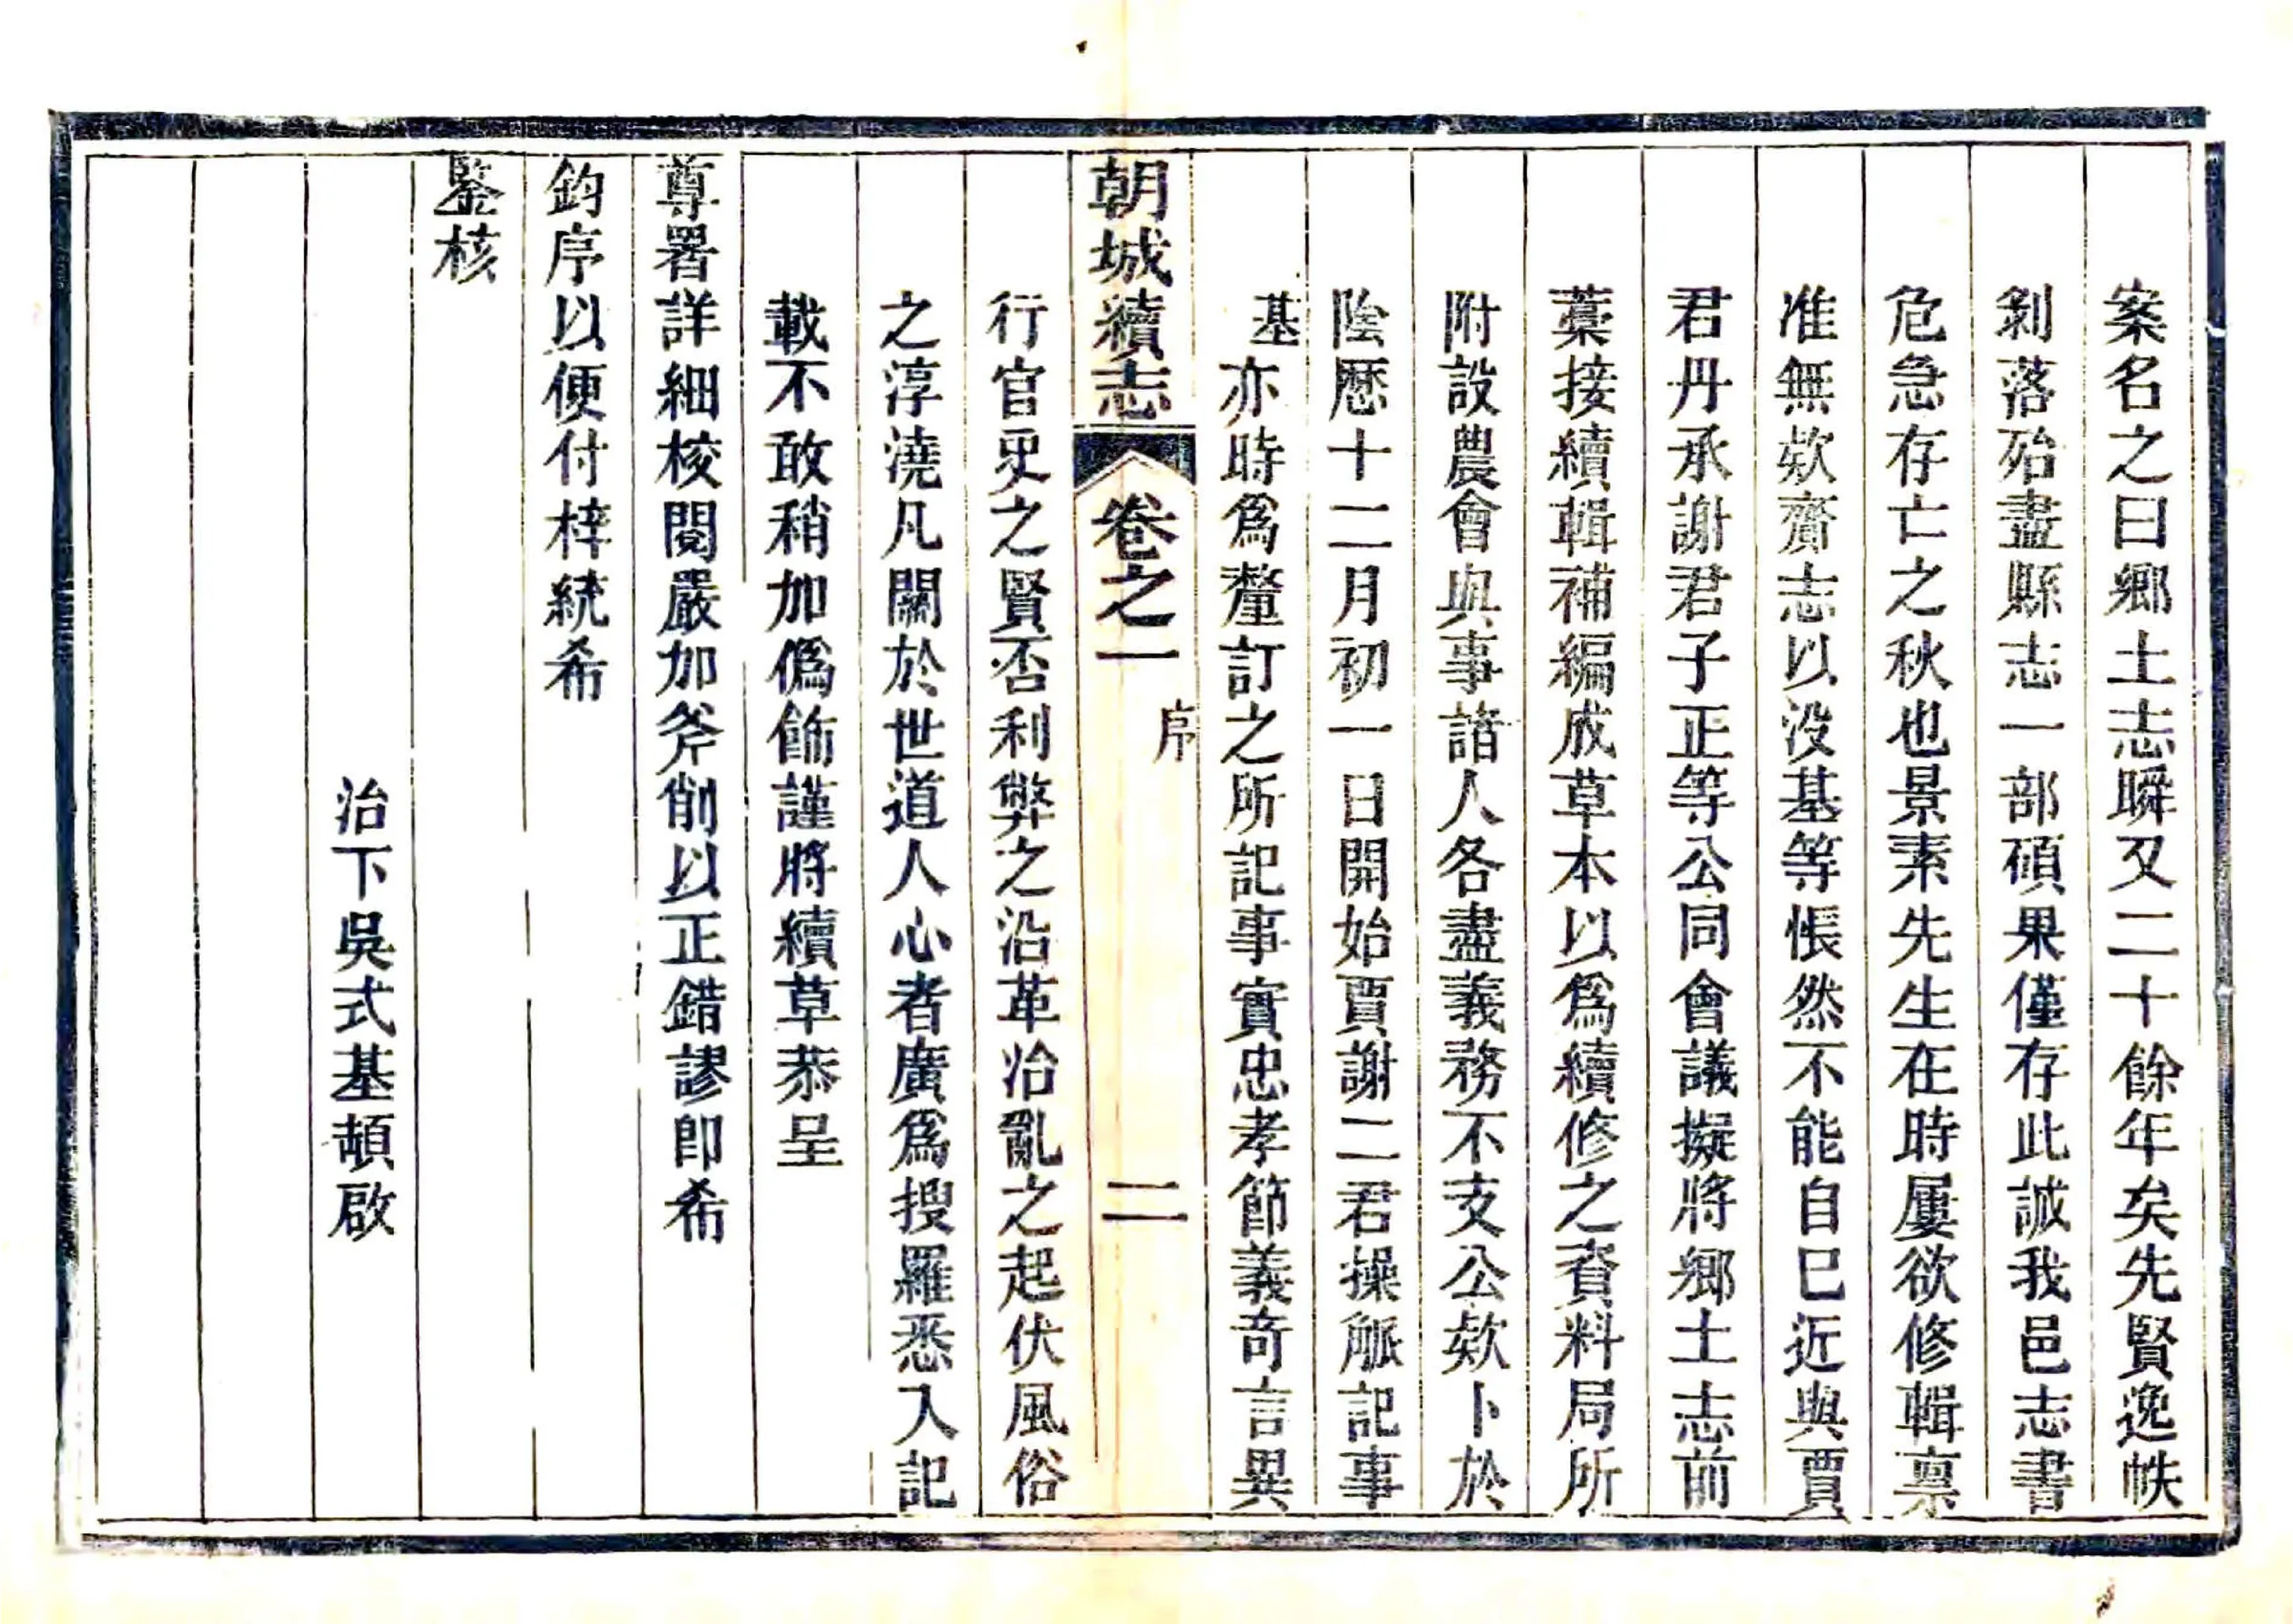 案名之曰鄉土志瞬又二十餘年矣先賢逸帙
剝落殆盡縣志一部碩果僅存此誠我邑志書
危急存亡之秋也景素先生在時屢欲修輯稟
准無欵齎志以没基等悵然不能自已近與賈
君丹承謝君子正等公同會議擬將鄉土志前
藁接續輯補編成草本以爲續修之資料局所
附設農會與事諸人各盡義務不支公欵卜於
陰曆十二月初一日開始賈謝二君操觚記事
基亦時爲釐訂之所記事實忠孝節義奇言異
朝城續志 卷之一 序 二
行官吏之賢否利弊之沿革治亂之起伏風俗
之淳澆凡關於世道人心者廣爲搜羅悉入記
載不敢稍加僞飾謹將續草恭呈
尊署詳細校閱嚴加斧削以正錯謬即希
鈞序以便付梓統希
鑒核
治下吳式基頓啟